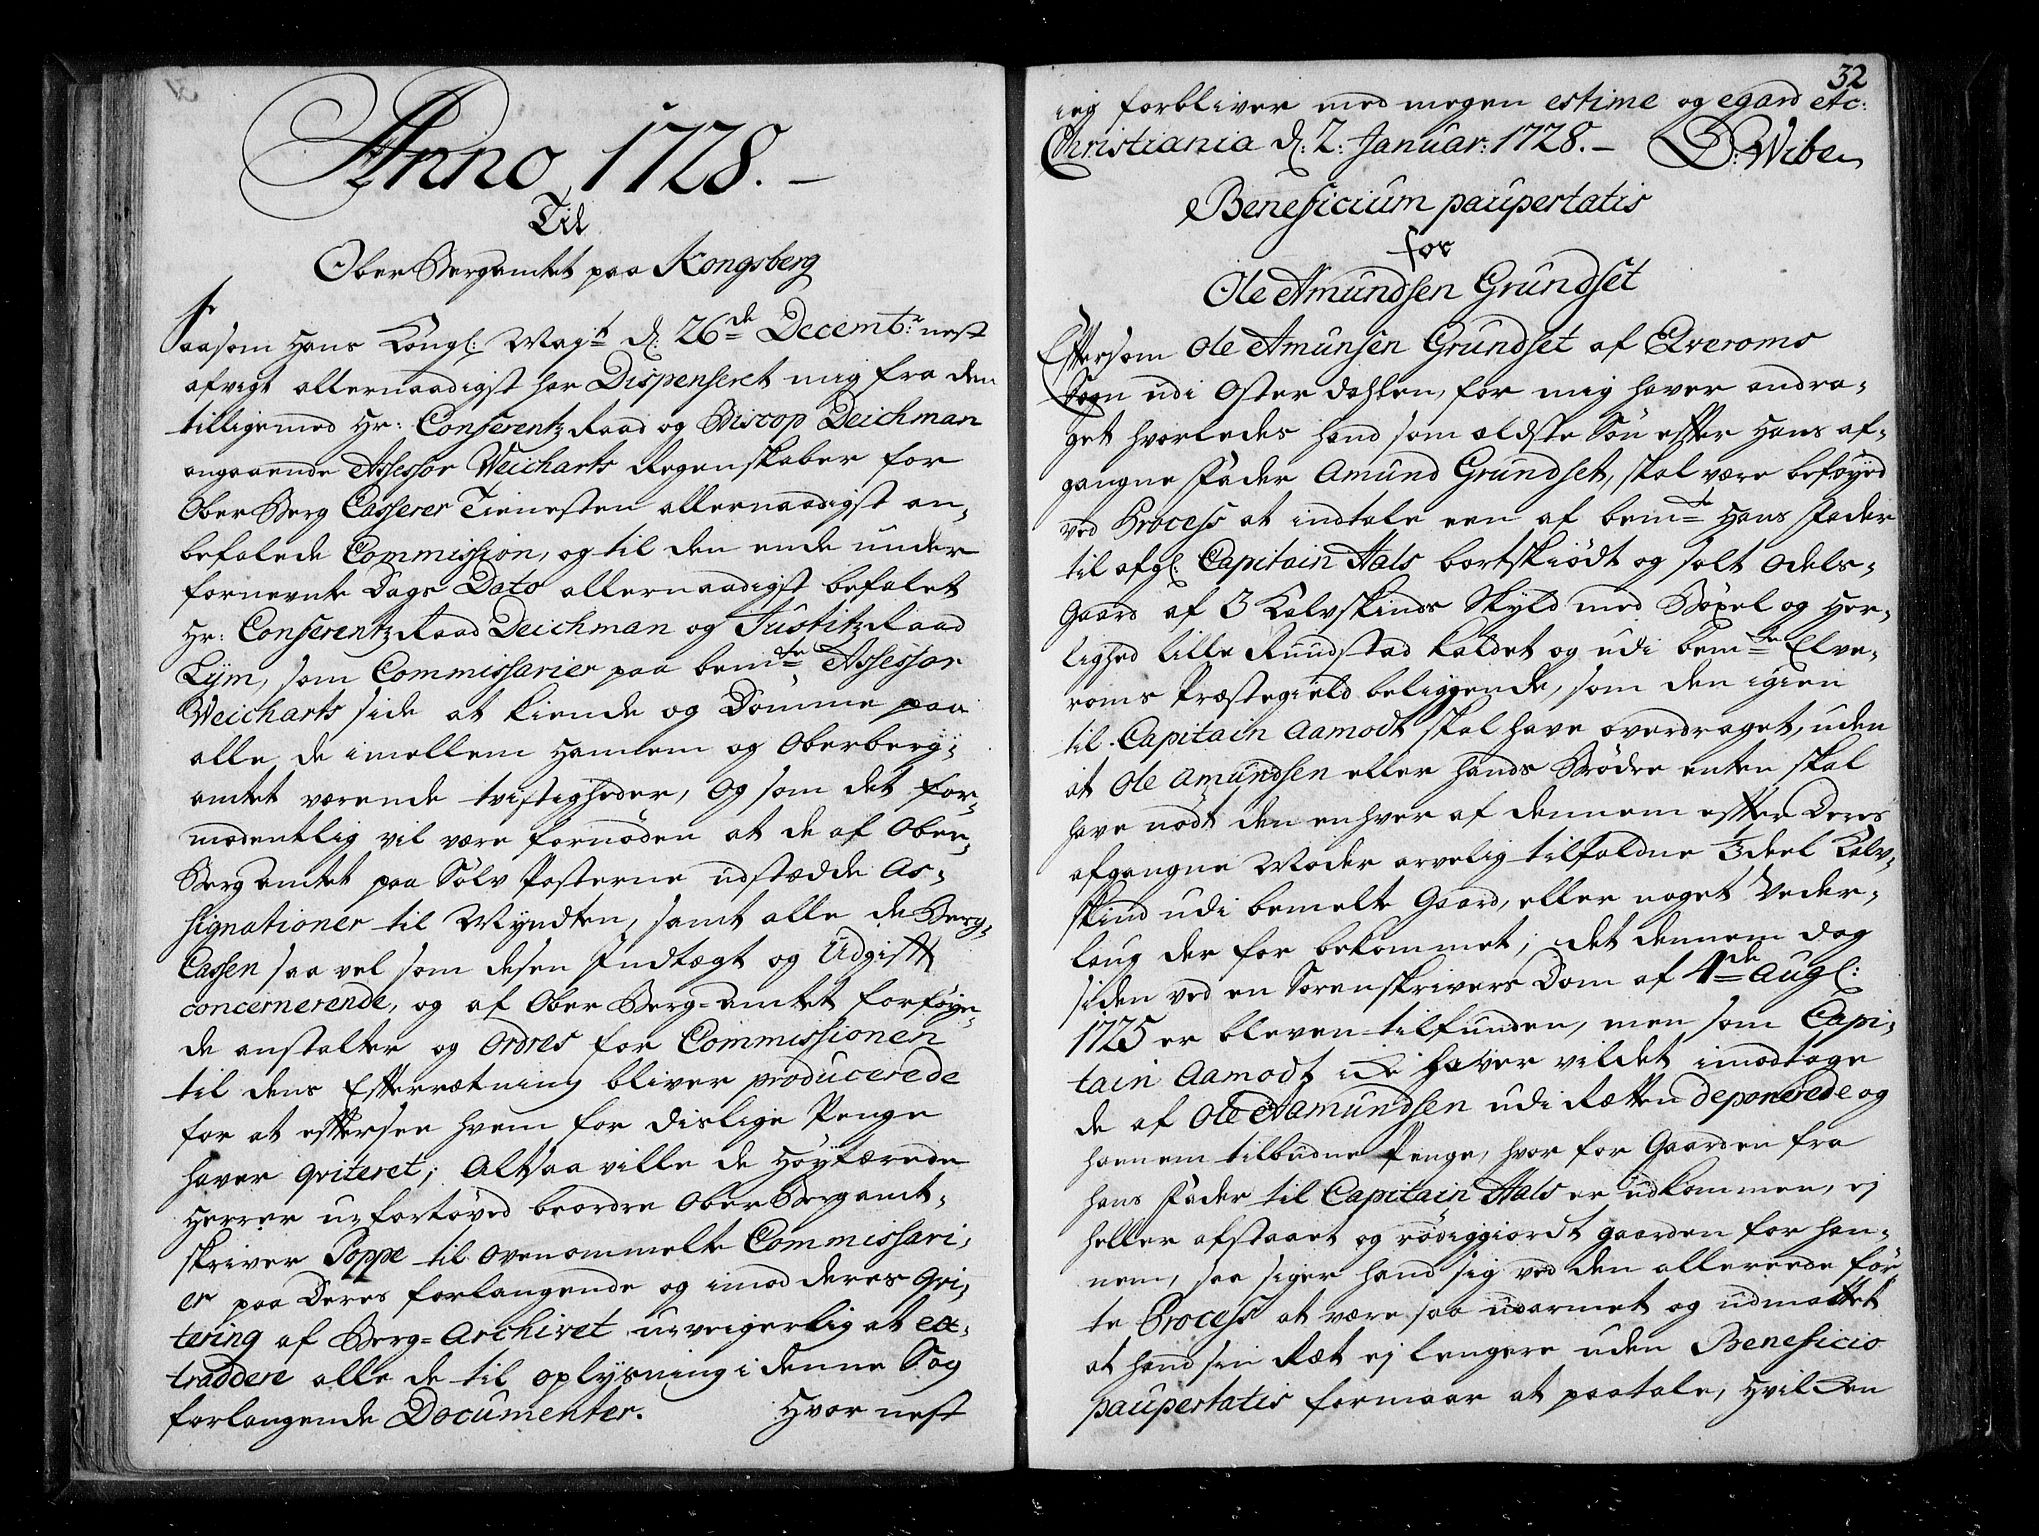 Anno 1728. –
Til
Ober Bergamtet paa Kongsberg
Saasom Hans Kongl: May:t d: 26de Decembr: nest
afvigt allernaadigst har Dispenseret mig fra den
tilligemed Hr: Conferentz Raad og Biscop Deichman
angaaende Assessor Weicharts Regenskaber for
Ober Berg Casserer Tienesten allernaadigst an-
befalede Commission, og til den ende under
fornevnte Dags Dato allernaadigst befalet
Hr: Conferentz Raad Deichman og Justitz Raad
Lÿm, som Commissarier paa bemte Assessor
Weicharts side at kiende og Dömme paa
alle de imellem Hannem og Oberberg-
amtet værende tvistigheder, Og som det for-
modentlig vil være fornöden at de af Ober-
Berg Amtet paa Sölv Posterne udstædde As-
signationer til Mÿndten, samt alle de Berg-
Cassen saa vel som desen Indtægt og Udgift
concernerende, og af Ober Berg-amtet forföye-
de anstalter og Ordres for Commissionen
til dens Efterrætning bliver producerede
for at eftersee hvem for dislige Penge
haver qviteret; Altsaa ville de Höytærede
Herrer u-fortöved beordre Ober Bergamt-
skriver Poppe til ovenommelte Commissari-
er paa Deres forlangende og imod deres Qvi-
tering af Berg-Archivet u-veigerlig at ex-
tradere alle de til oplysning i denne Sag
forlangende Documenter. Hvor nest
32
ieg forbliver med megen estime og egard etc:
Christiania d: 2: Januar: 1728. – D: Wibe
Beneficium paupertatis
for
Ole Amundsen Grundset
Eftersom Ole Amunsen Grundset af Elveroms
Sogn udi Osterdahlen, for mig haver andra-
get hvorledes hand som ældste Sön efter Hans af-
gangne Fader Amund Grundset, skal være beföyed
ved Process at indtale een af bemte Hans Fader
til afgl: Capitain Hals bortskiödt og solt Odels-
Gaard af 3 Kalvskinds Skyld med Böxel og Her-
lighed lille Ruudstad kaldet og udi bemte Elve-
roms Præstegield beliggende, som den igien
til Capitain Aamodt skal have overdraget, uden
at Ole Amundsen eller hands Brödre enten skal
have nödt den enhver af dennem efter Deres
afgangne Moder arvelig tilfaldne 1/3 deel Kalv-
skind udi bemelte Gaard, eller noget Veder-
laug der for bekommet; det dennem dog
siden ved en Sorenskrivers Dom af 4de Augl:
1725 er bleven tilfunden, men som Capi-
tain Aamodt icke haver vildet imodtage
de af Ole Aamundsen udi Rætten deponerede og
hannem tilbudne Penge, hvor for Gaarden fra
hans Fader til Capitain Hals er udkommen, ej
heller afstaaet og rödiggiordt gaarden for han-
nem, saa siger hand sig ved den allereede för-
te Process at være saa udarmet og udmattet
at hand sin Ræt ej lengere uden Beneficio
paupertatis formaar at paatale, Hvilcken